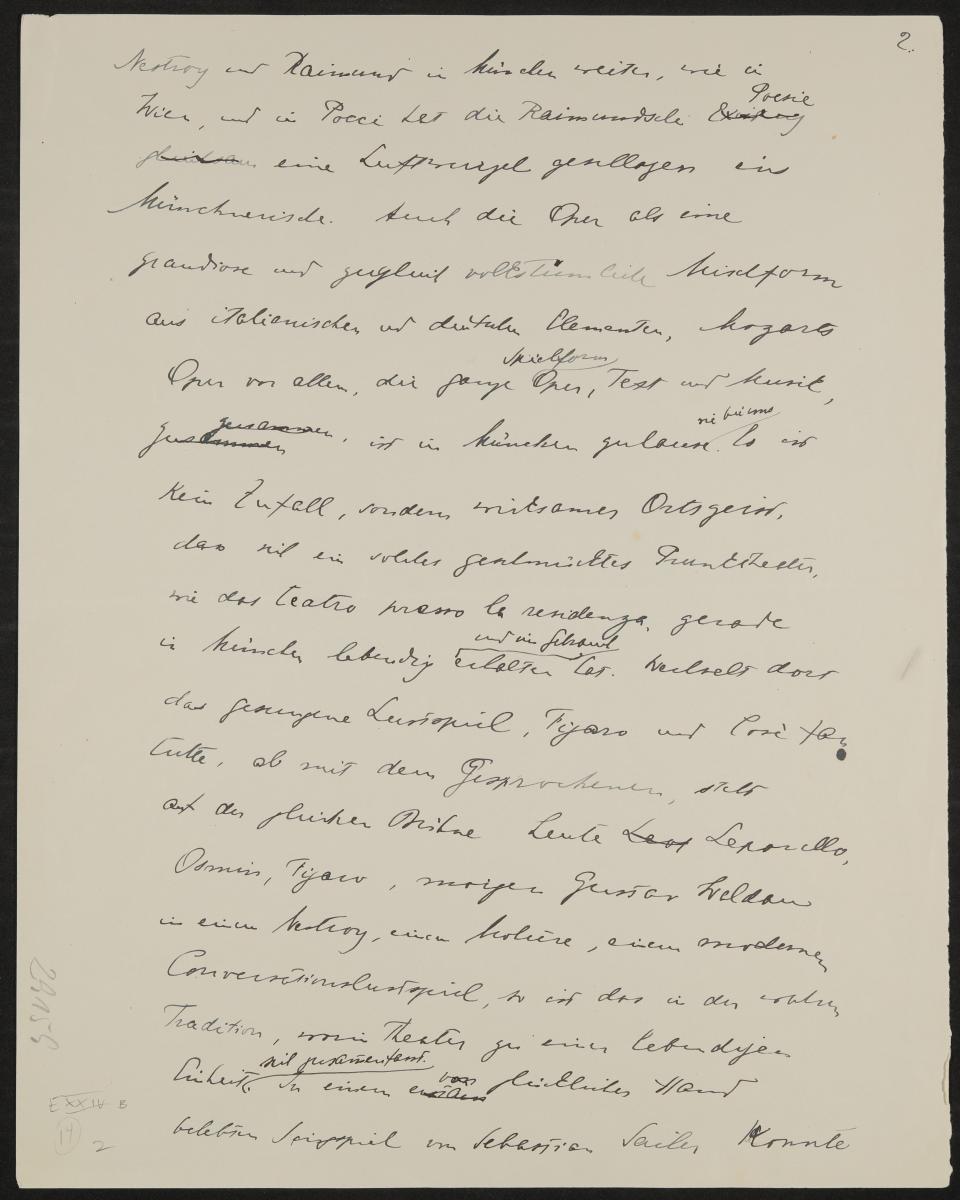 2.
Nestroy und Raimund in München weiter, wie in
Poesie
Wien, und in Pocci hat die Raimundsche
gleichsam eine Luftwurzel geschlagen ins
Münchnerische. Auch die Oper als eine
grandiose und zugleich volkstümliche Mischform
aus italienischen und deutschen Elementen, Mozarts
Spielform
Oper vor allem, die ganze Oper, Text und Musik,
zusammen
zusammen, ist in München zuhause. Es ist
nie bei uns
kein Zufall, sondern wirksamer Ortsgeist,
dass sich ein solches geschmücktes Prunktheater,
wie das teatro presso la residenza, gerade
und im Gebrauch
in München lebendig erhalten hat. Wechselt dort
das gesungene Lustspiel, Figaro und Così fan
tutte, ab mit dem Gesprochenen, steht
auf der gleichen Bühne heute Leporello,
Osmin, Figaro, morgen Gustav Waldau
in einem Nestroy, einem Molière, einem modernen
Conversationslustspiel, so ist das in der wahren
Tradition, worin Theater zu einer lebendigen
sich zusammenfasst.
Einheit. In einem von glücklicher Hand
belebten Singspiel von Sebastian Sailer konnte
E XXIV B
14
2